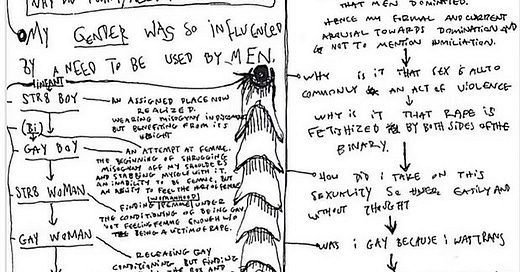 MY GENDER WAS SO INFLUENCED
BY A NEED TO BE USED BY MEN.
INFANT
STR8 BOY
AN ASSIGNED PLACE NOW
REALIZED.
WEARING MISOGYNY IN
BUT BENEFITING FROM ITS
(Bi)
GAY BOY
AN ATTEMPT AT FEMME.
THE BEGINNING OF SHRUGGING
MISOGYNY OFF MY SHOULDERS
AND STABBING MYSELF WITH IT.
AN INABILITY TO BE FEMME, BUT
AN ABILITY TO FEEL THE OF FEMME
WOMANHOOD
STR8 WOMAN
FINDING FEMME UNDER
THE CONDITIONING OF BEING GAY.
NOT FEELING FEMME ENOUGH W/O
BEING A VICTIM OF RAPE.
GAY WOMAN
RELEASING GAY
CONDITIONING BUT FINDING
THE BOX AND
THAT MEN DOMINATED.
HENCE MY FORMAL AND CURRENT
AROUSAL TOWARDS DOMINATION AND
NOT TO MENTION HUMILIATION.
WHY IS IT THAT SEX IS ALL TO
COMMONLY AN ACT OF VIOLENCE
WHY IS IT THAT RAPE IS
FETISHIZED BY BOTH SIDES OF THE
BINARY.
HOW DID I TAKE ON THIS
SEXUALITY SO EASILY AND
WITHOUT THOUGHT
WAS I GAY BECAUSE I WAS TRANS